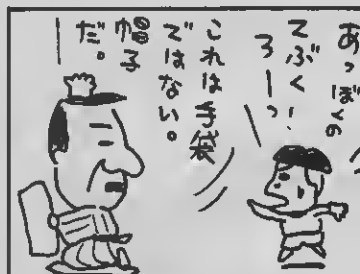 あっぼくの
てぶく、
ろーっ
これは手袋
ではない。
帽子
だ。